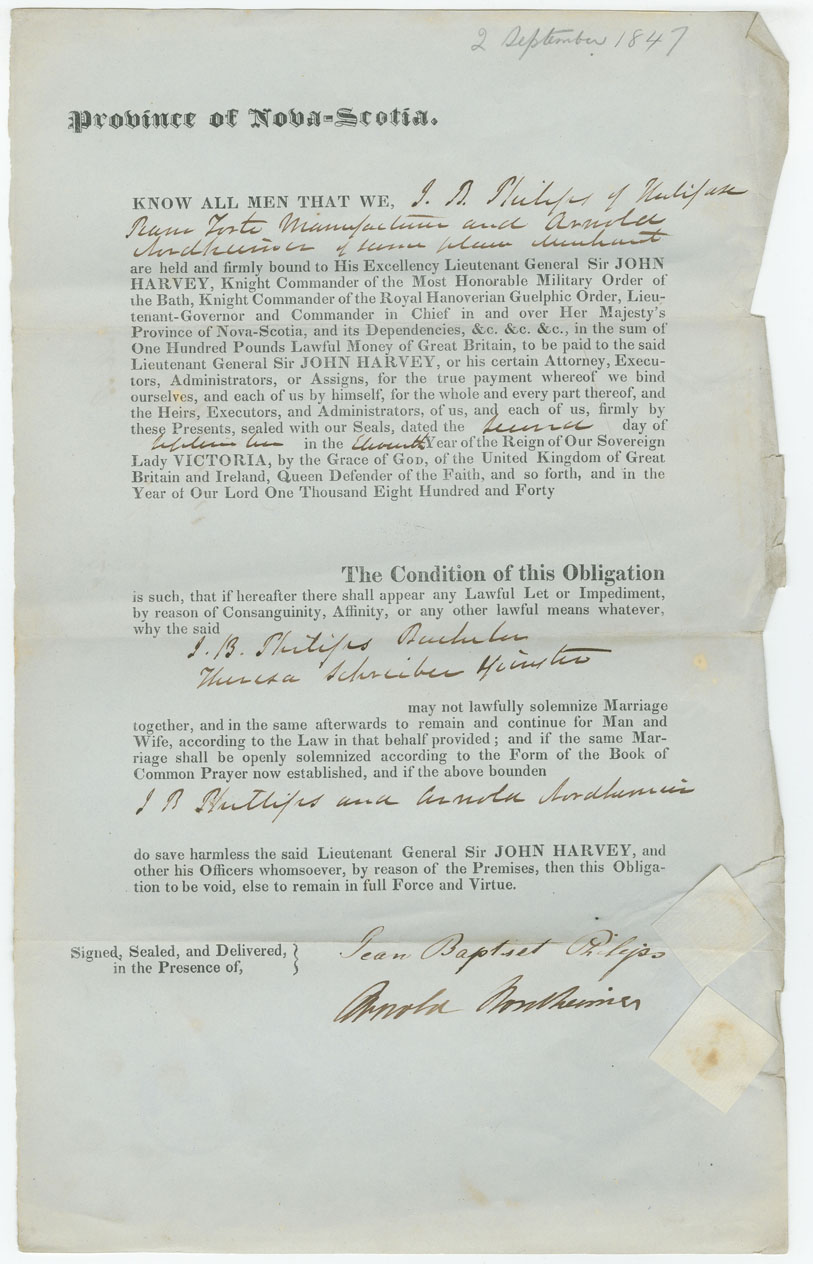 2 September 1847
Province of Nova-Scotia.
KNOW ALL MEN THAT WE, J. B. Philips of Halifax
Piano Forte Manufacturer and Arnold
Nordheimer of same place Merchant
are held and firmly bound to His Excellency Lieutenant General Sir JOHN
HARVEY, Knight Commander of the Most Honorable Military Order of
the Bath, Knight Commander of the Royal Hanoverian Guelphic Order, Lieu-
tenant-Governor and Commander in Chief in and over Her Majesty's
Province of Nova-Scotia, and its Dependencies, &c. &c. &c., in the sum of
One Hundred Pounds Lawful Money of Great Britain, to be paid to the said
Lieutenant General Sir JOHN HARVEY, or his certain Attorney, Execu-
tors, Administrators, or Assigns, for the true payment whereof we bind
ourselves, and each of us by himself, for the whole and every part thereof, and
the Heirs, Executors, and Administrators, of us, and each of us, firmly by
these Presents, sealed with our Seals, dated the Second day of
September in the Eleventh Year of the Reign of Our Sovereign
Lady VICTORIA, by the Grace of GOD, of the United Kingdom of Great
Britain and Ireland, Queen Defender of the Faith, and so forth, and in the
Year of Our Lord One Thousand Eight Hundred and Forty
The Condition of this Obligation
is such, that if hereafter there shall appear any Lawful Let or Impediment,
by reason of Consanguinity, Affinity, or any other lawful means whatever,
why the said
J. B. Philips Bachelor
Theresa Schreiber Spinster
may not lawfully solemnize Marriage
together, and in the same afterwards to remain and continue for Man and
Wife, according to the Law in that behalf provided; and if the same Mar-
riage shall be openly solemnized according to the Form of the Book of
Common Prayer now established, and if the above bounden
J B Phillips and Arnold Nordheimer
do save harmless the said Lieutenant General Sir JOHN HARVEY, and
other his Officers whomsoever, by reason of the Premises, then this Obliga-
tion to be void, else to remain in full Force and Virtue.
Signed, Sealed, and Delivered,
in the Presence of,
Jean Baptset Philips
Arnold Nordheimer